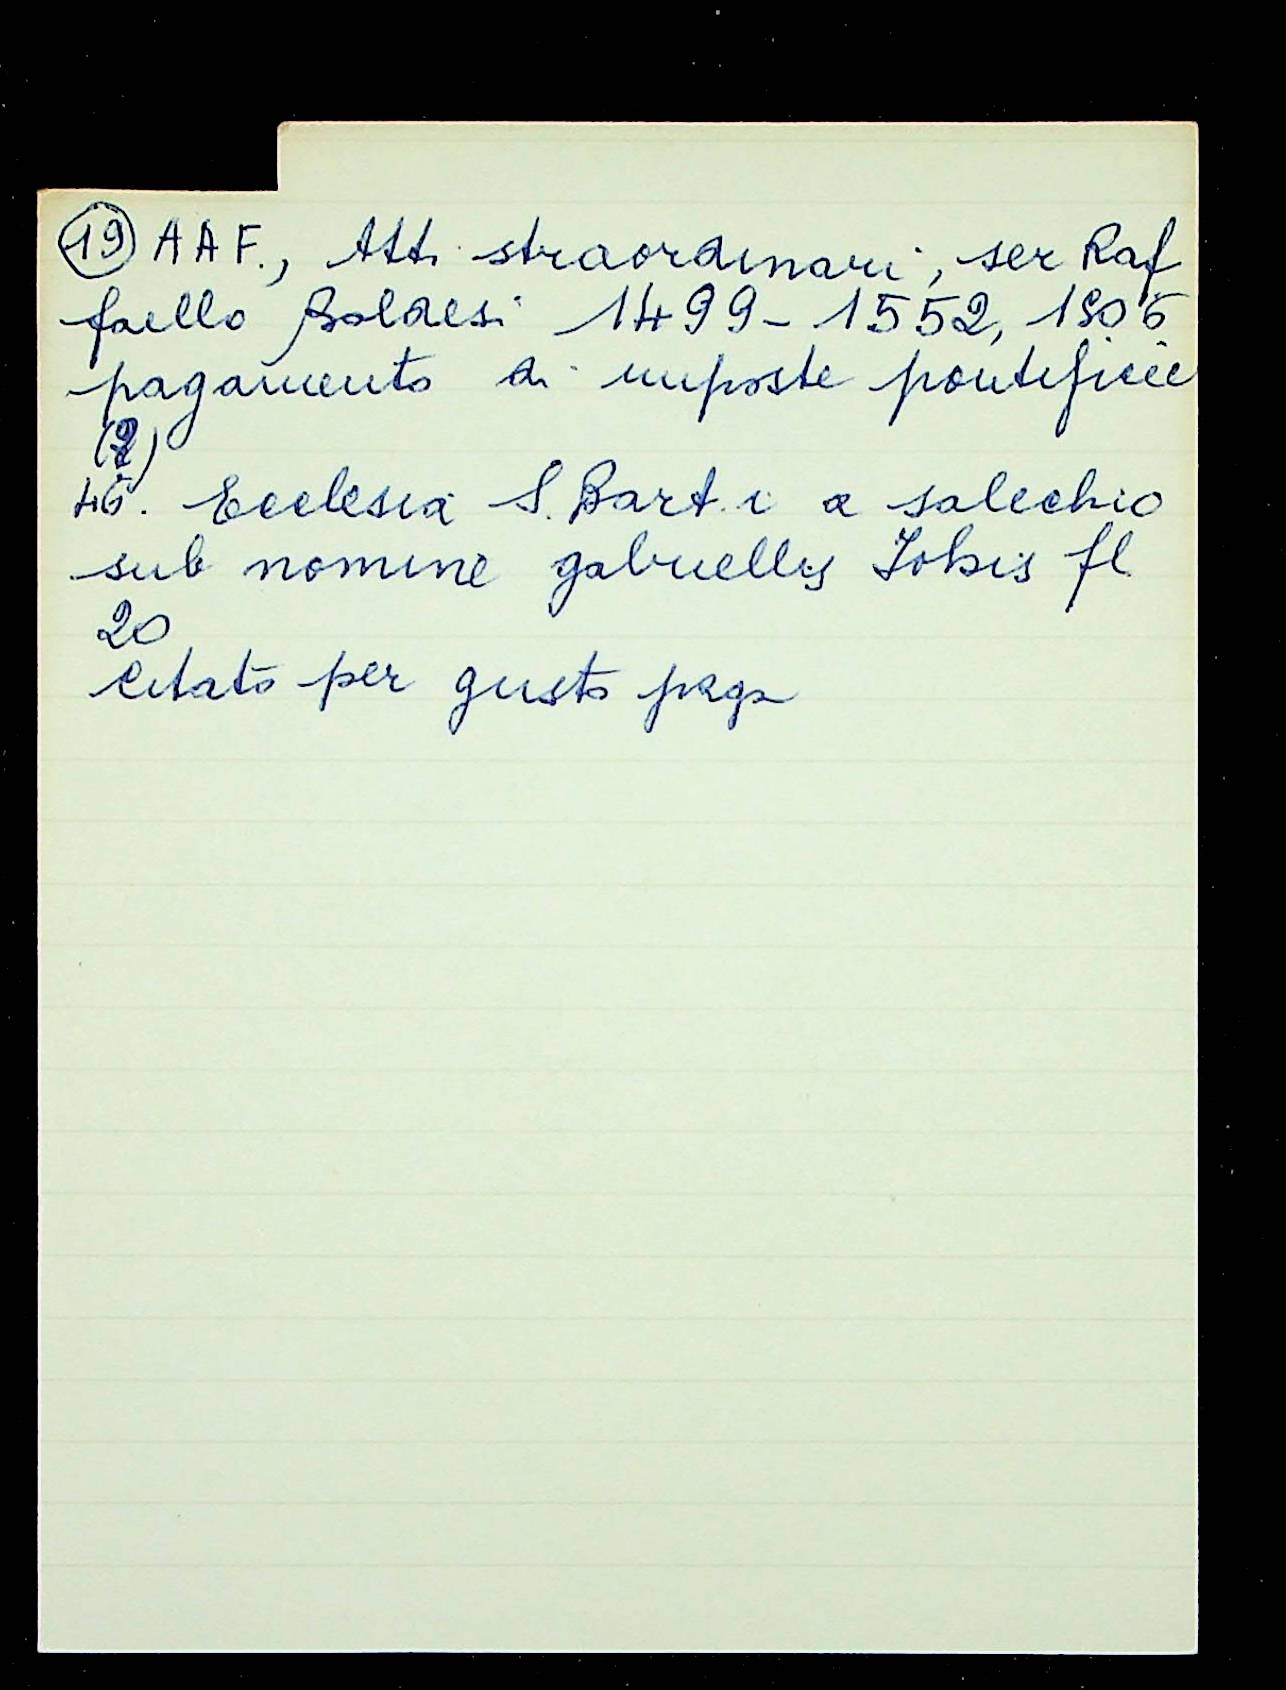 (19) A A F., Atti straordinari, ser Raf
faello Baldesi 1499-1552, 1506
pagamento di imposte pontificie
(2)
46. Ecclesia S. Bart.i a salecchio
sub nomine gabriellis Johis fl
20
Citato per giusto paga